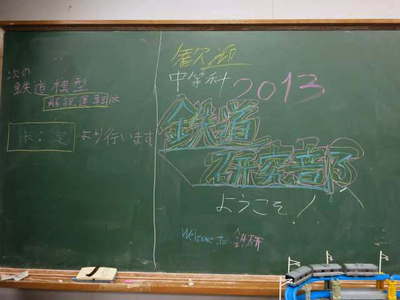 次の
鉄道模型
解説運転は
未・定 より行います
歓迎
中学科 2013
鉄道
研究部
ようこそ!
Welcome to 鉄研